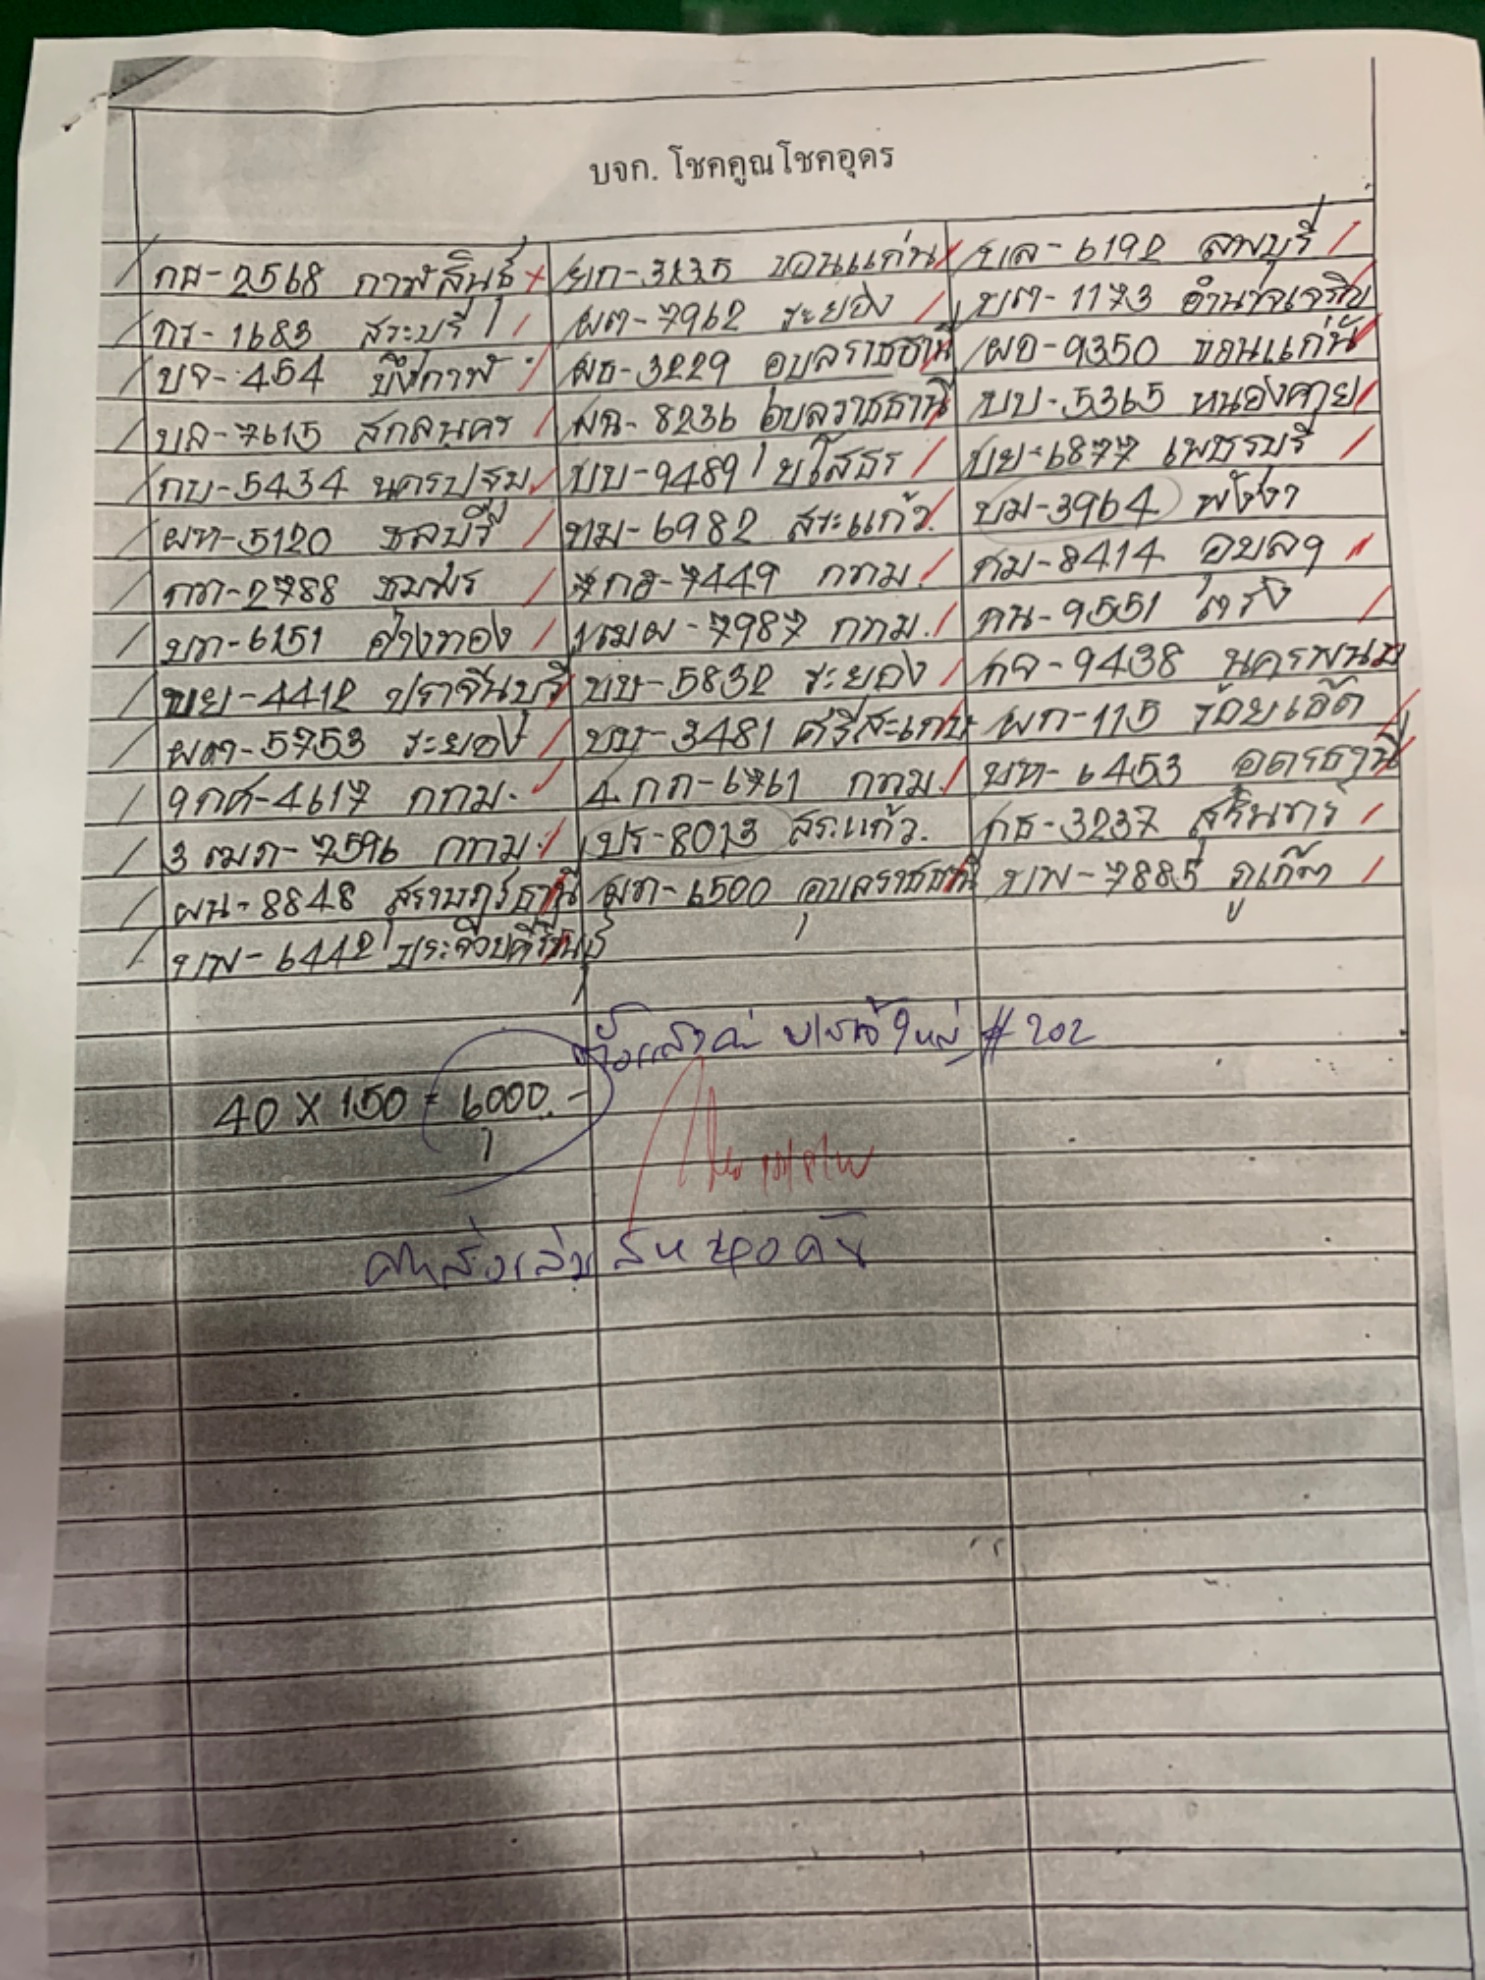 บจก. โชคคูณโชคอุดร
2568 กาฬสินธุ์
กร-1683 สระบุรี
บจ-454 บึงกาฬ
บล-7615 สกลนคร
กบ-5434 นครปฐม
ผท-5120 ชลบุรี
2788 ชุมพร
บท-6151 อ่างทอง
ขย-4412 ปราจีนบุรี
ผต-5753 ระยอง
9กศ-4617 กทม.
3 ฒภ-7596 กทม.
ผน-8848 สุราษฎร์ธานี
บพ-6442 ประจวบคีรีขันธ์
ขอนแก่น
ผต-7962 ระยอง
ผธ-3229 อุบลราชธานี
ผฉ-8236 อุบลราชธานี
บบ-9489 ยโสธร
6982 สระแก้ว
7449 กทม.
1ฒผ-7987 กทม.
บษ-5832 ระยอง
3481 ศรีสะเกษ
6761 กทม.
ปร-8013 สระแก้ว
6500 อุบลราชธานี
บล-6192 ลพบุรี
บต-1173 อำนาจเจริญ
ผอ-9350 ขอนแก่น
บบ-5365 หนองคาย
บย-6877 เพชรบุรี
บม-3964 พังงา
กม-8414 อุบลฯ
กน-9551 ตรัง
กจ-9438 นครพนม
ผก-115 ร้อยเอ็ด
บท-6453 อุดรธานี
กธ-3237 สุรินทร์
บพ-7885 ภูเก็ต
ใหม่ #202
40 x 150 = 6000.-